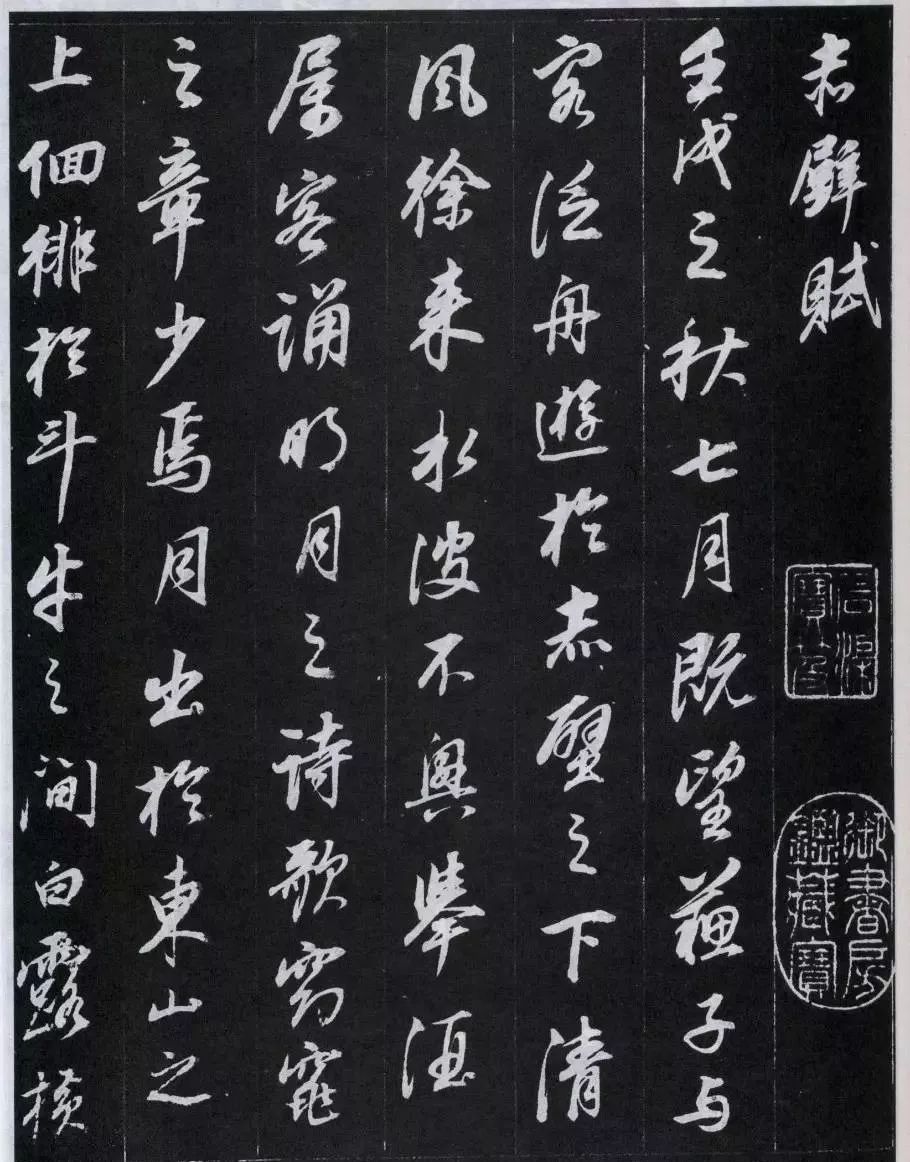 赤壁賦
壬戌之秋七月既望蘇子与
客泛舟遊於赤壁之下清
風徐来水波不興舉酒
属客誦明月之詩歌窈窕
之章少焉月出於東山之
上徊徘於斗牛之澗白露横
石渠寶笈
御書房鑑藏寶